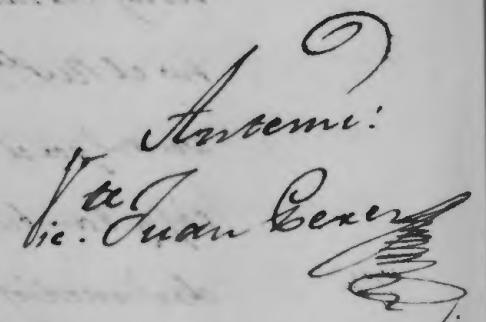 Antemi:
Vic.te Juan Gexer